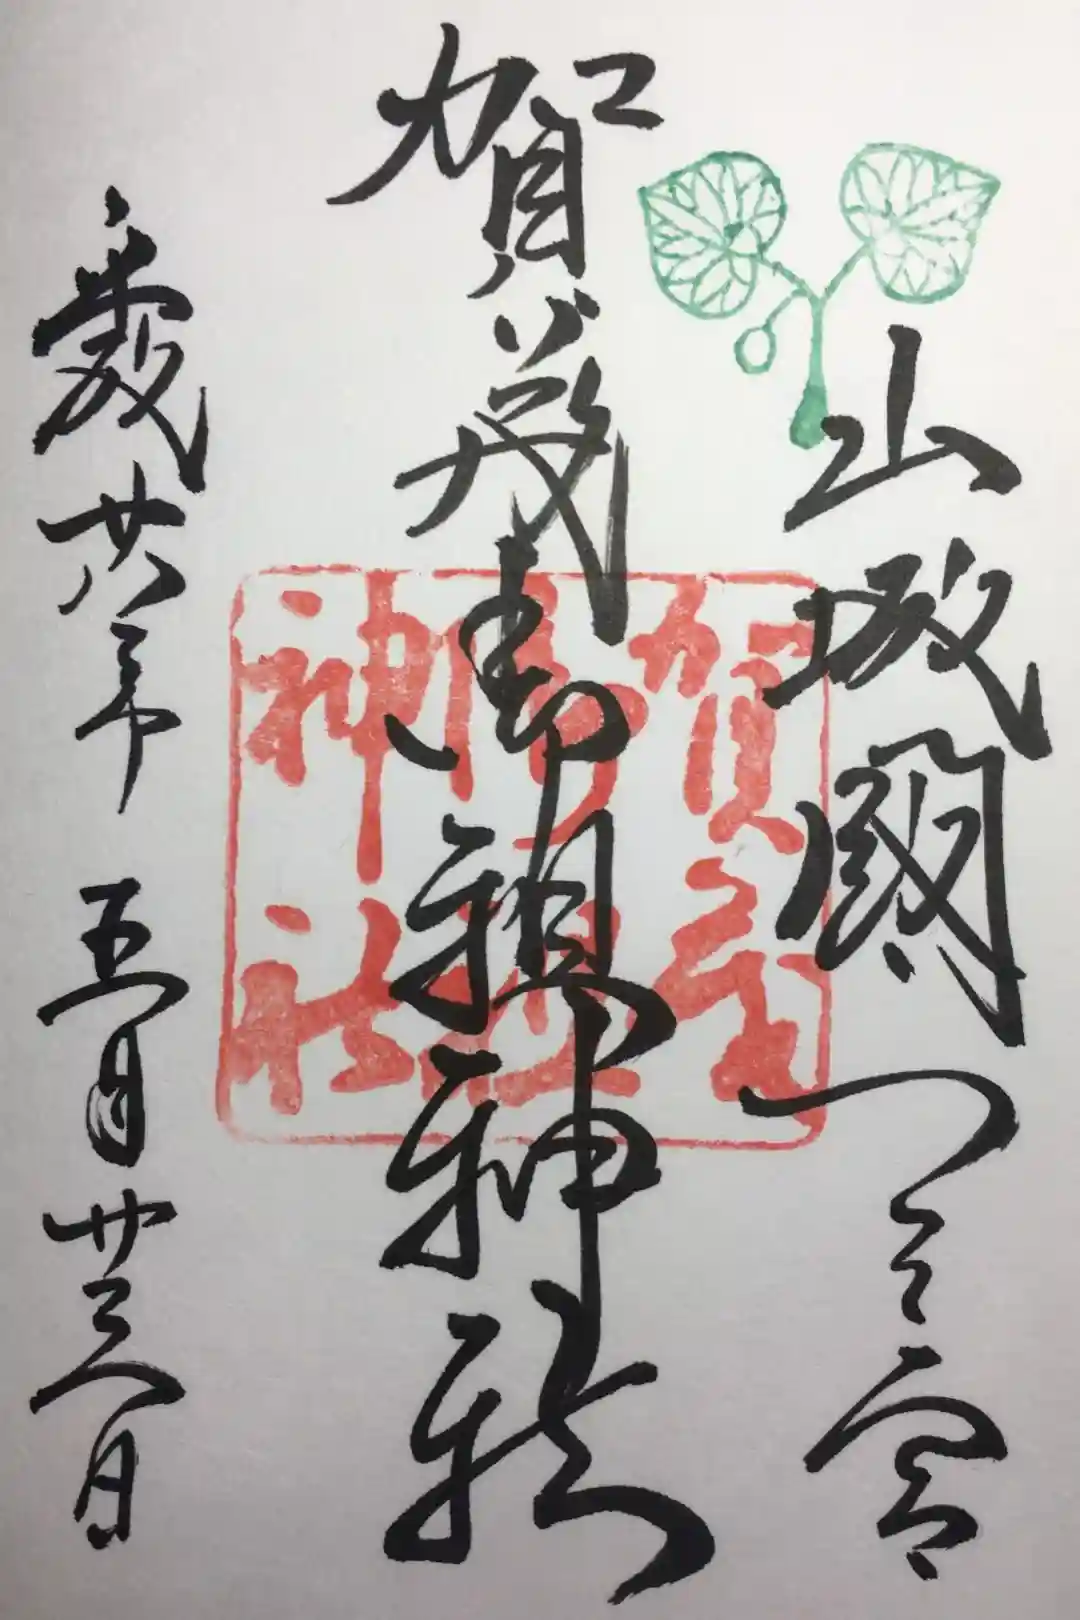 山城國一之宮
賀茂御祖神社
平成廿八年 五月
賀茂
御祖
神社